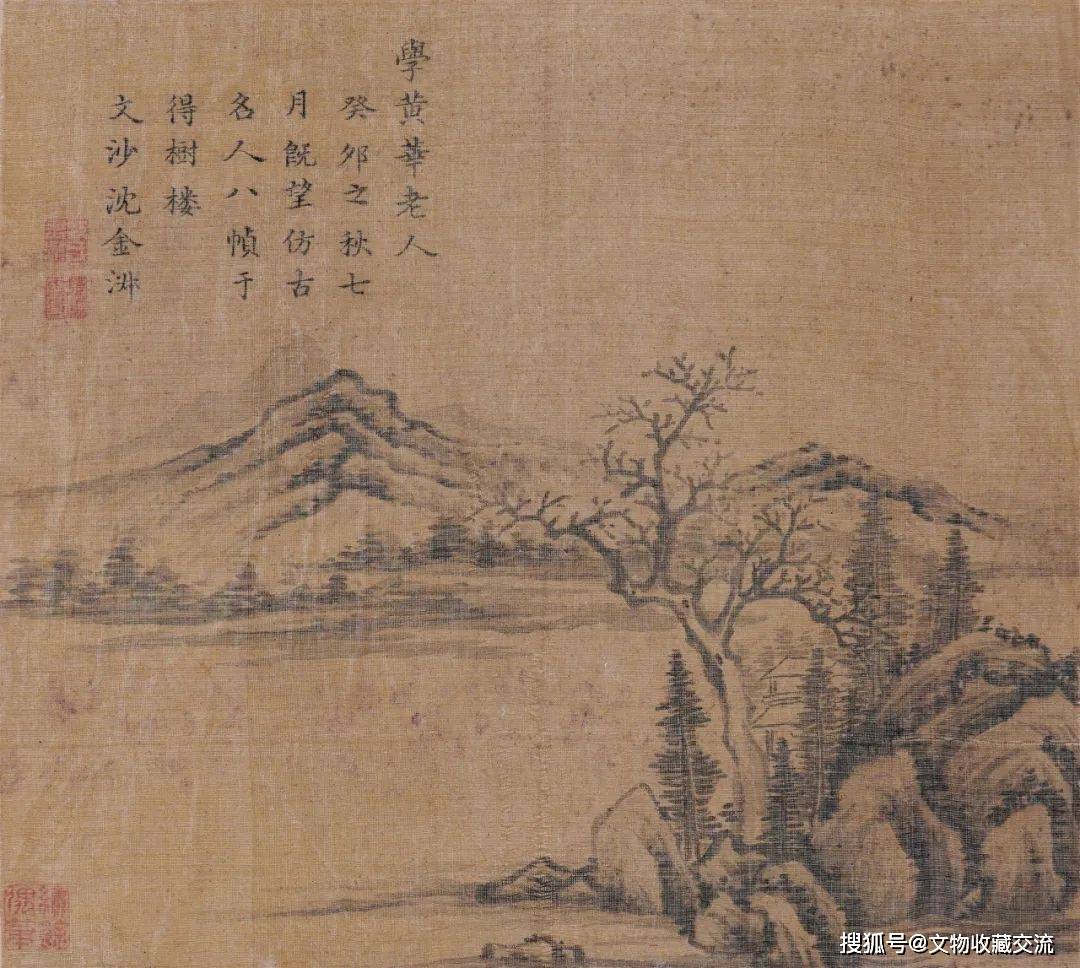 學黄華老人
癸卯之秋七
月既望仿古
名人八幀于
得樹楼
文沙沈金
搜狐号@文物收藏交流